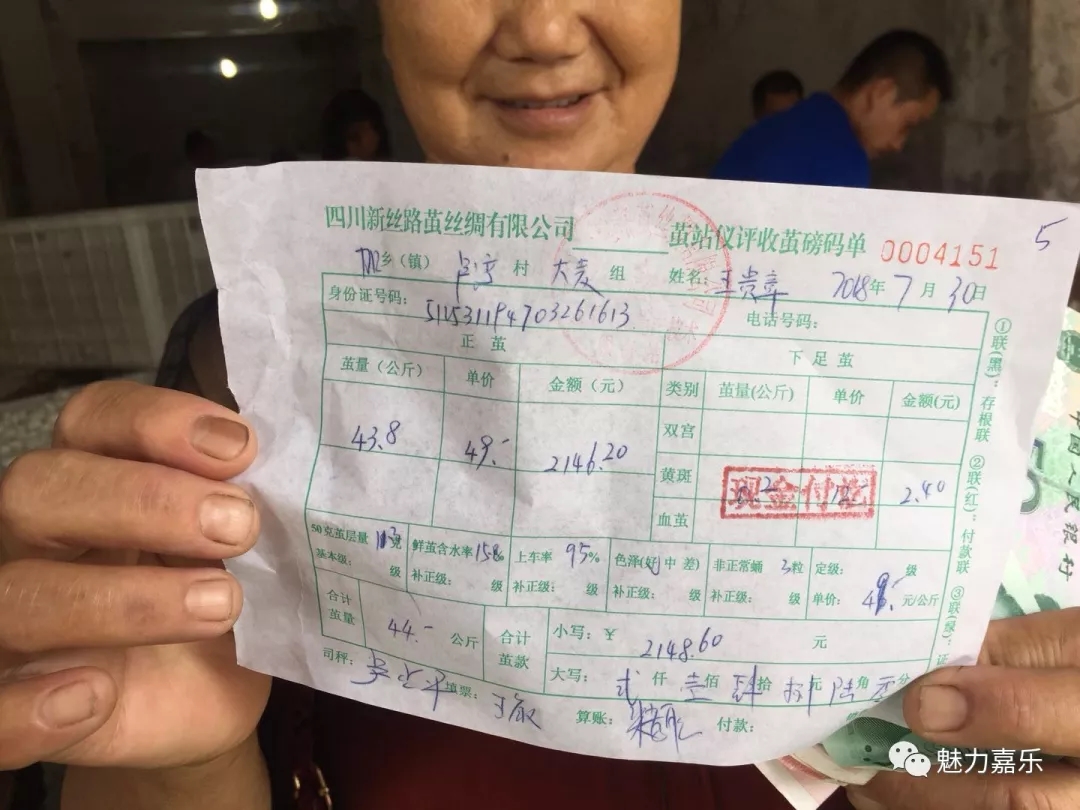 四川新丝路茧丝绸有限公司 茧站仪评收茧磅码单 0004151 5
乡（镇） 村 大麦 组 姓名: 2018年 7 月 30日
身份证号码: 511531194703261613 电话号码:
正 茧 下 足 茧
茧量（公斤） 单价 金额（元） 类别 茧量(公斤) 单价 金额(元)
双宫
43.8 49.- 2146.20
黄斑 2.40
现金付讫
血茧
50克茧层量 克 鲜茧含水率15% 上车率 95% 色泽(好 中 差) 非正常蛹 3粒 定级: 级
基本级: 级 补正级: 级 补正级: 级 补正级: 级 补正级: 级 单价: 49.- 元/公斤
合计茧量 44.- 公斤 合计茧款 小写: ¥ 2148.60 元
大写: 贰 仟 壹 佰 肆 拾 捌 元 陆 角 分
司秤: 填票: 算账: 付款:
①联(黑): 存根联 ②联(红): 付款联 ③联(绿): 证
中国人民银行
魅力嘉乐